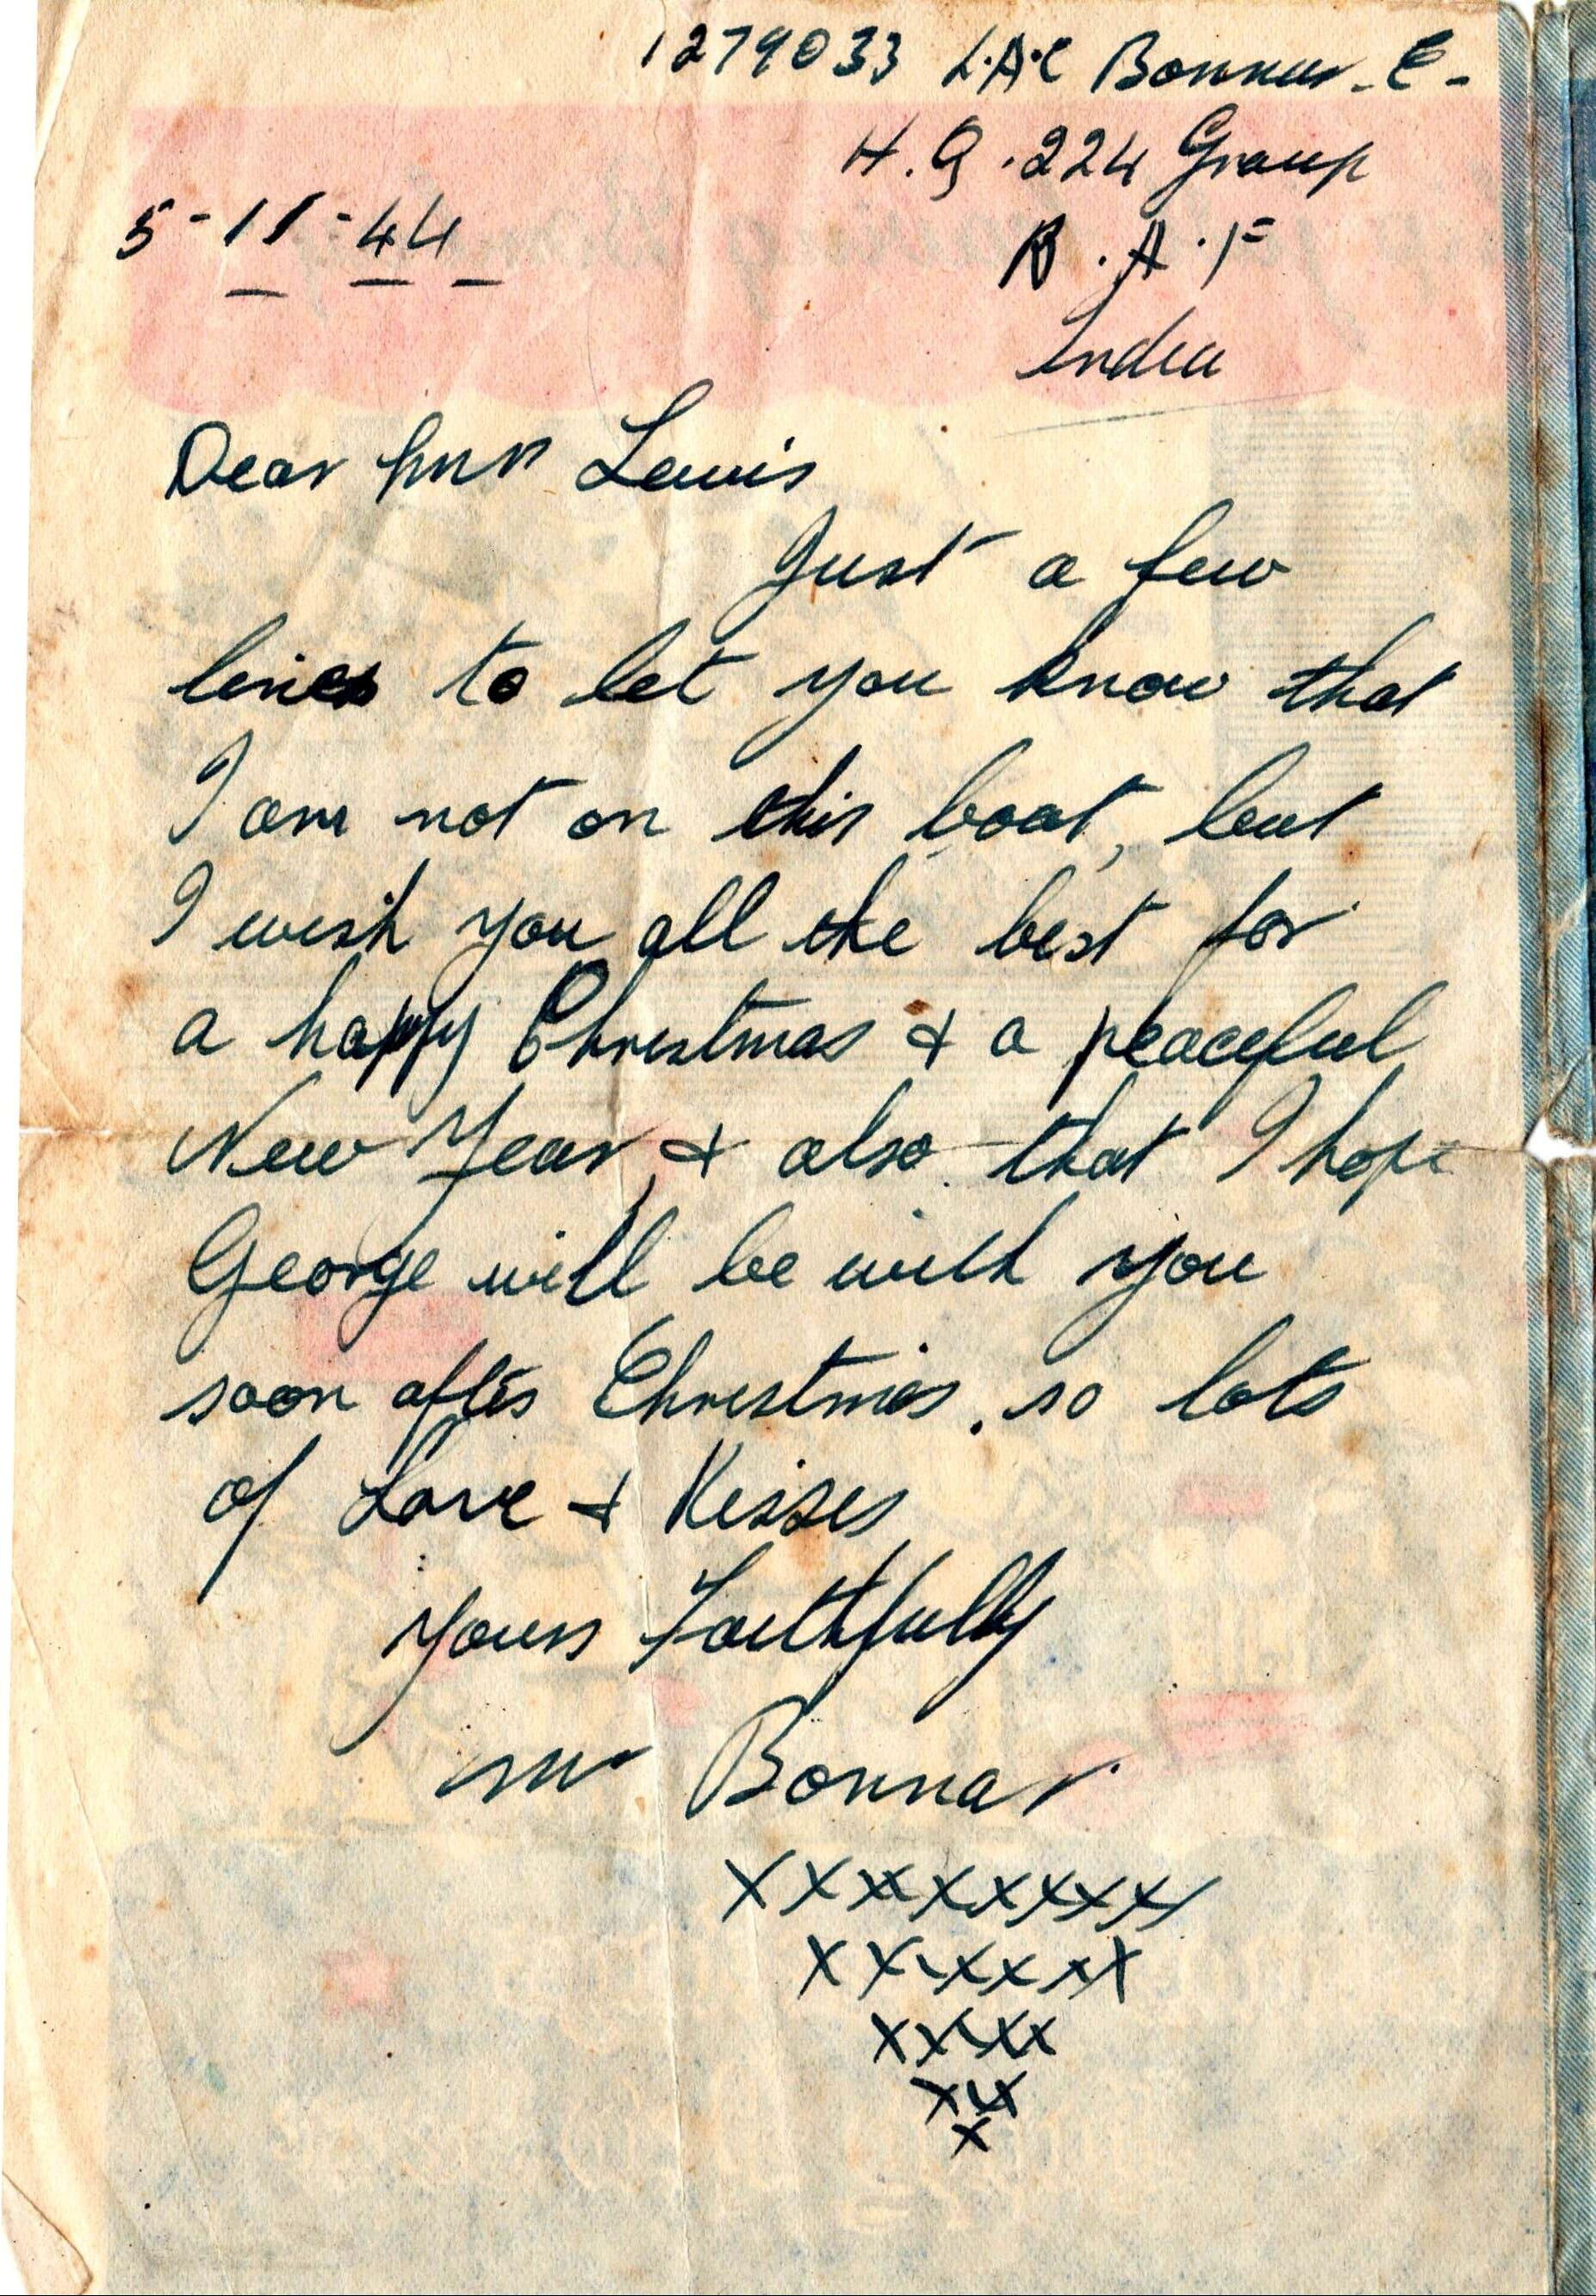 1279033 L.A.C Bonnar. E -
H.Q. 224 Group
5-11-44
R.A.F
India
Dear Mrs Lewis
Just a few
lines to let you know that
I am not on this boat, but
I wish you all the best for
a happy Christmas & a peaceful
New Year, & also that I hope
George will be with you
soon after Christmas. so lots
of Love & Kisses
Yours Faithfully
Mr Bonnar
XXXXXXXX
XXXXXX
XXXXX
XXX
X